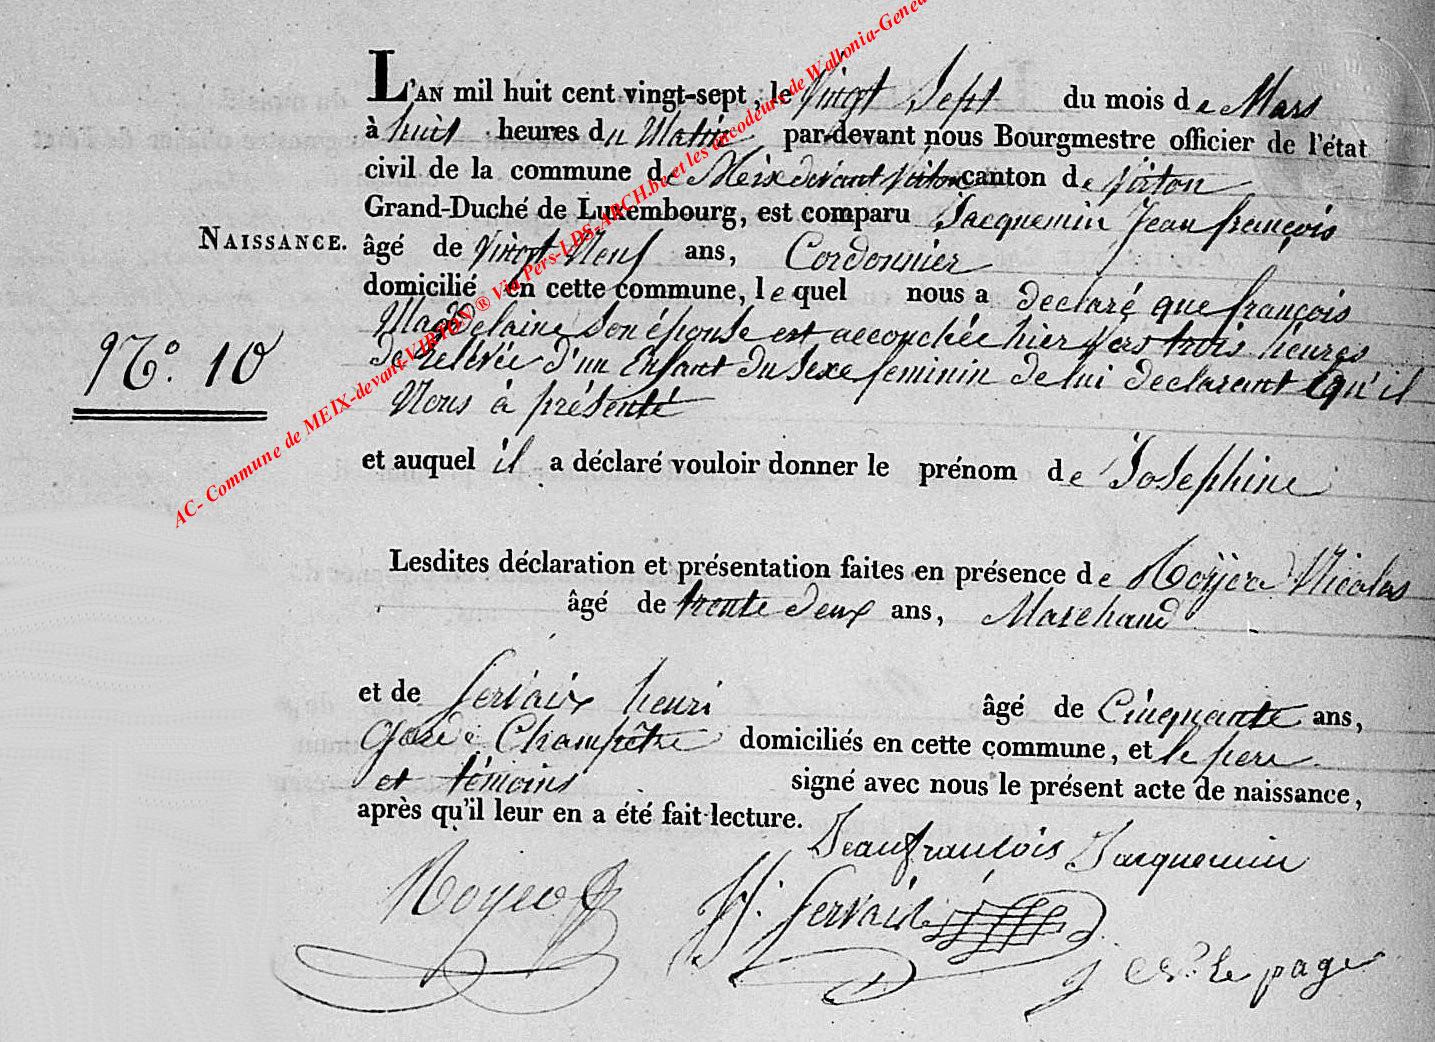 L'AN mil huit cent vingt-sept, le Vingt Sept du mois de Mars
à huit heures du Matin par-devant nous Bourgmestre officier de l'état
civil de la commune de Meix devant Virton canton de Virton
Grand-Duché de Luxembourg, est comparu Jacquemin Jean françois
NAISSANCE.
âgé de Vingt Neuf ans, Cordonnier
domicilié en cette commune, lequel nous a declaré que françois
Magdelaine Son épouse est accouchée hier vers trois heures
N.° 10
de relévée d'un Enfant du Sexe feminin de lui declarant qu'il
Nous à présenté
et auquel il a déclaré vouloir donner le prénom de Josephine
Lesdites déclaration et présentation faites en présence de Nicolas
âgé de trente deux ans, Marchand
et de Servaix henri âgé de Cinquante ans,
Garde Champêtre domiciliés en cette commune, et le pere
et témoins signé avec nous le présent acte de naissance,
après qu'il leur en a été fait lecture.
Jean francois Jacquemin
H. Servais
le page
AC- Commune de MEIX-devant-VIRTON® Via Pers-LDS-ARCH.be et les encodeurs de Wallonia-Genea